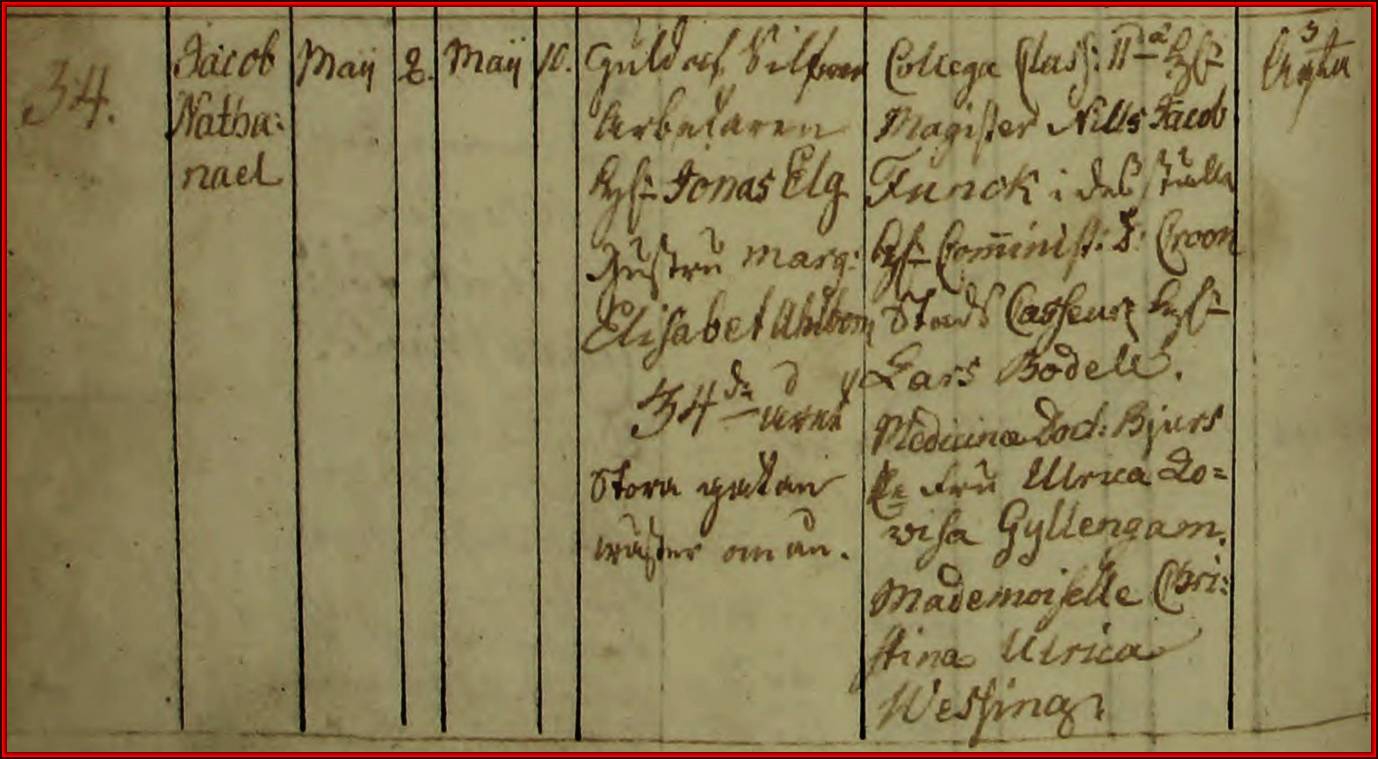 34.
Jacob
Natha:
nael
Maÿ
2.
Maÿ
10.
Guld och Silfwer
Arbetaren
H:r Jonas Elg
Hustru Marg:
Elisabet Ahlbom
34de året
Stora gatan
wäster om ån.
Collega Class: IIda H:r
Magister Nills Jacob
Funck i des ställe
H:r Comminist: Croon
Stads Casseur H:r
Lars Bodell.
Medicinæ Doct: Bjurs
Fru Ulrica Lo=
wisa Gyllengam.
Mademoiselle Chri:
stina Ulrica
Wessing.
3